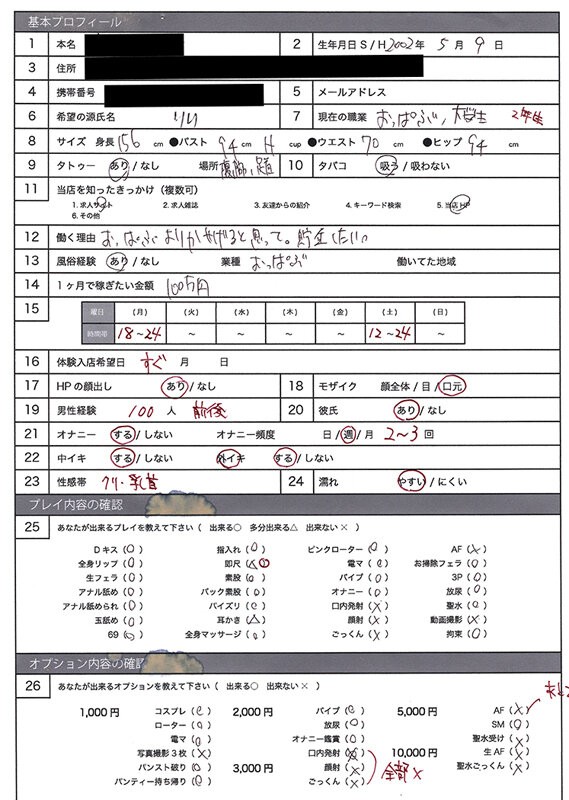 基本プロフィール
1 本名 2 生年月日 S / H 2002年 5月 9日
3 住所
4 携帯番号 5 メールアドレス
6 希望の源氏名 リリ 7 現在の職業 おっぱぶ、大学生 2年生
8 サイズ 身長 156 cm ●バスト 94 cm H cup ●ウエスト 70 cm ●ヒップ 94 cm
9 タトゥー あり / なし 場所 10 タバコ 吸う / 吸わない
11 当店を知ったきっかけ（複数可）
1. 求人サイト 2. 求人雑誌 3. 友達からの紹介 4. キーワード検索 5. 当店HP
6. その他
12 働く理由 おっぱぶよりかせげると思って。貯金したい
13 風俗経験 あり / なし 業種 おっぱぶ 働いてた地域
14 1ヶ月で稼ぎたい金額 100万円
15 曜日 (月) (火) (水) (木) (金) (土) (日)
時間帯 18~24 ~ ~ ~ ~ 12~24 ~
16 体験入店希望日 すぐ 月 日
17 HPの顔出し あり / なし 18 モザイク 顔全体 / 目 / 口元
19 男性経験 100 人 前後 20 彼氏 あり / なし
21 オナニー する / しない オナニー頻度 日 / 週 / 月 2~3 回
22 中イキ する / しない 外イキ する / しない
23 性感帯 クリ・乳首 24 濡れ やすい / にくい
プレイ内容の確認
25 あなたが出来るプレイを教えて下さい（ 出来る○ 多分出来る△ 出来ない× ）
Dキス (○) 指入れ (○) ピンクローター (○) AF (×)
全身リップ (○) 即尺 (△○) 電マ (○) お掃除フェラ (○)
生フェラ (○) 素股 (○) バイブ (○) 3P (○)
アナル舐め (○) バック素股 (○) オナニー (○) 放尿 (○)
アナル舐められ (○) パイズリ (○) 口内発射 (×) 聖水 (○)
玉舐め (○) 耳かき (△) 顔射 (×) 動画撮影 (×)
69 (○) 全身マッサージ (○) ごっくん (×) 拘束 (○)
オプション内容の確認
26 あなたが出来るオプションを教えて下さい（ 出来る○ 出来ない× ）
1,000円 コスプレ (○) 2,000円 バイブ (○) 5,000円 AF (×)
ローター (○) 放尿 (○) SM (○)
電マ (○) オナニー鑑賞 (○) 聖水受け (×)
写真撮影3枚 (×) 口内発射 (×) 10,000円 生AF (×)
パンスト破り (○) 3,000円 顔射 (×) 全部× 聖水ごっくん (×)
パンティー持ち帰り (○) ごっくん (×)